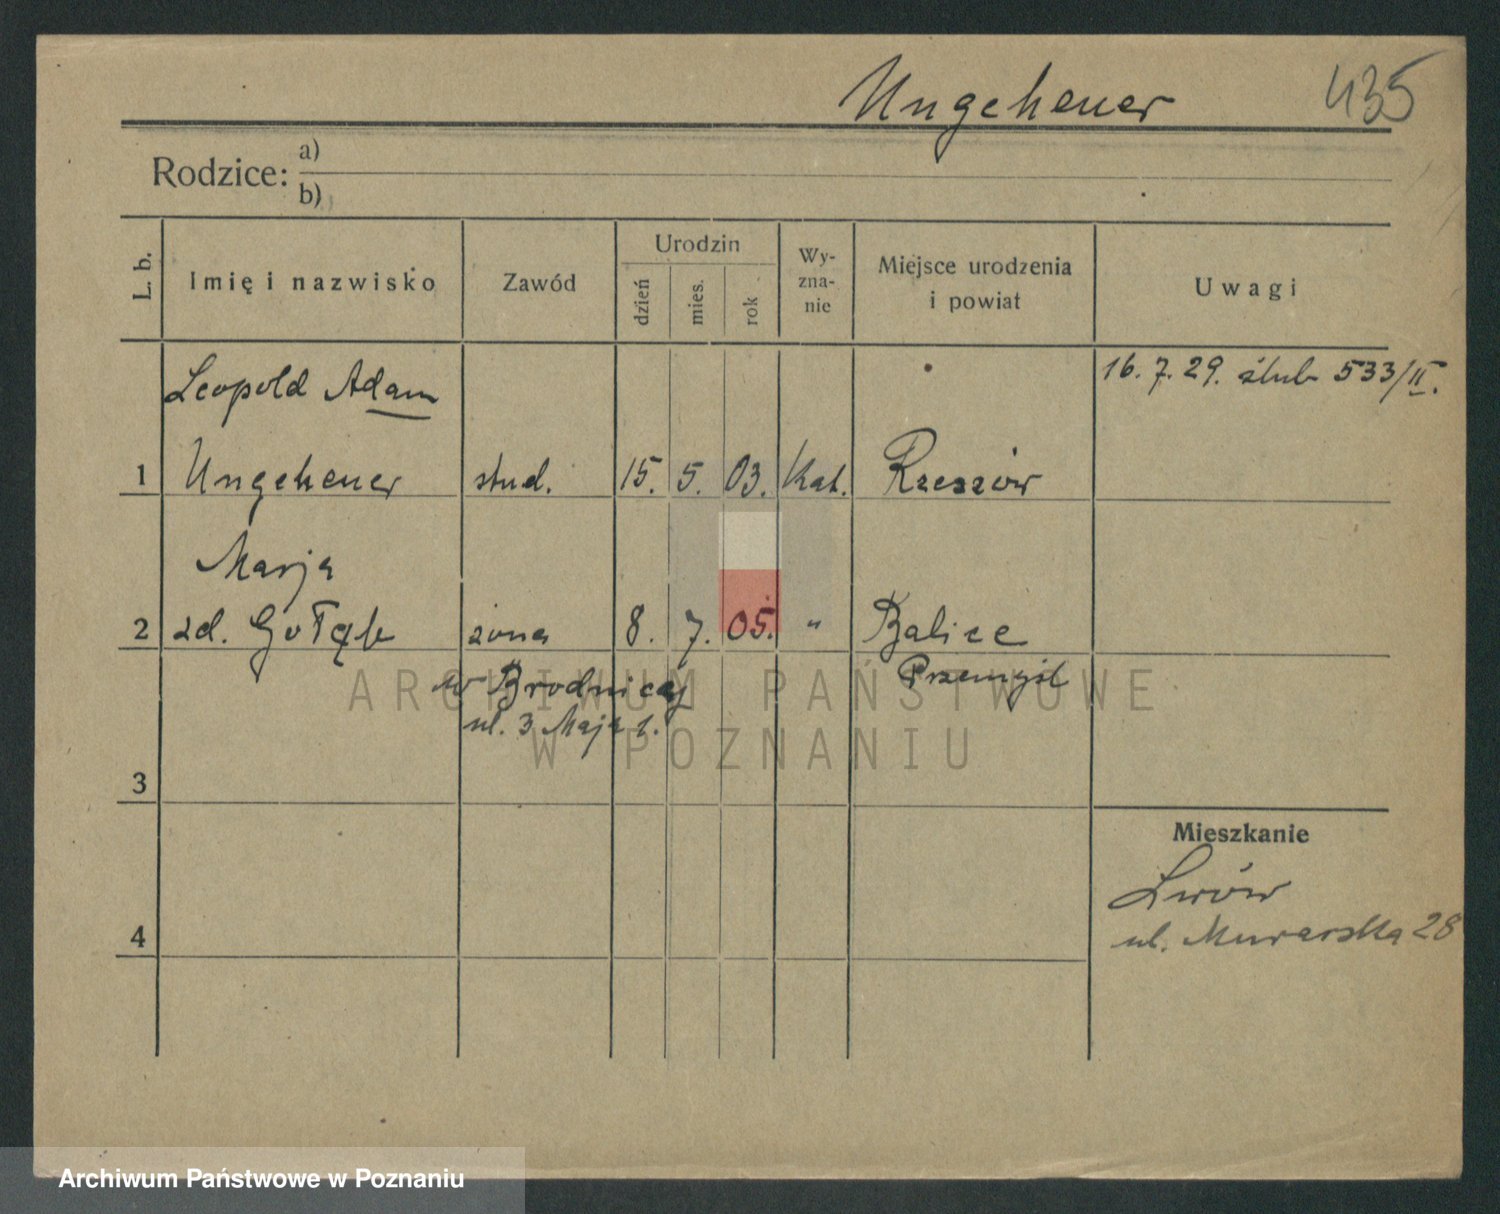 Ungeheuer 435
Rodzice: a)
b)
L. b.
Imię i nazwisko
Zawód
Urodzin
dzień
mies.
rok
Wy-
zna-
nie
Miejsce urodzenia
i powiat
Uwagi
Leopold Adam 16. 7. 29. ślub 533/II.
1 Ungeheuer stud. 15. 5. 03. Kat. Rzeszów
Marja
2 zd. Gołąb żona 8. 7. 05. " Balice
w Brodnicy Przemyśl
ul. 3 Maja 1.
ARCHIWUM PAŃSTWOWE
W POZNANIU
3
Mieszkanie
Lwów
4 ul. Murarska 28
Archiwum Państwowe w Poznaniu